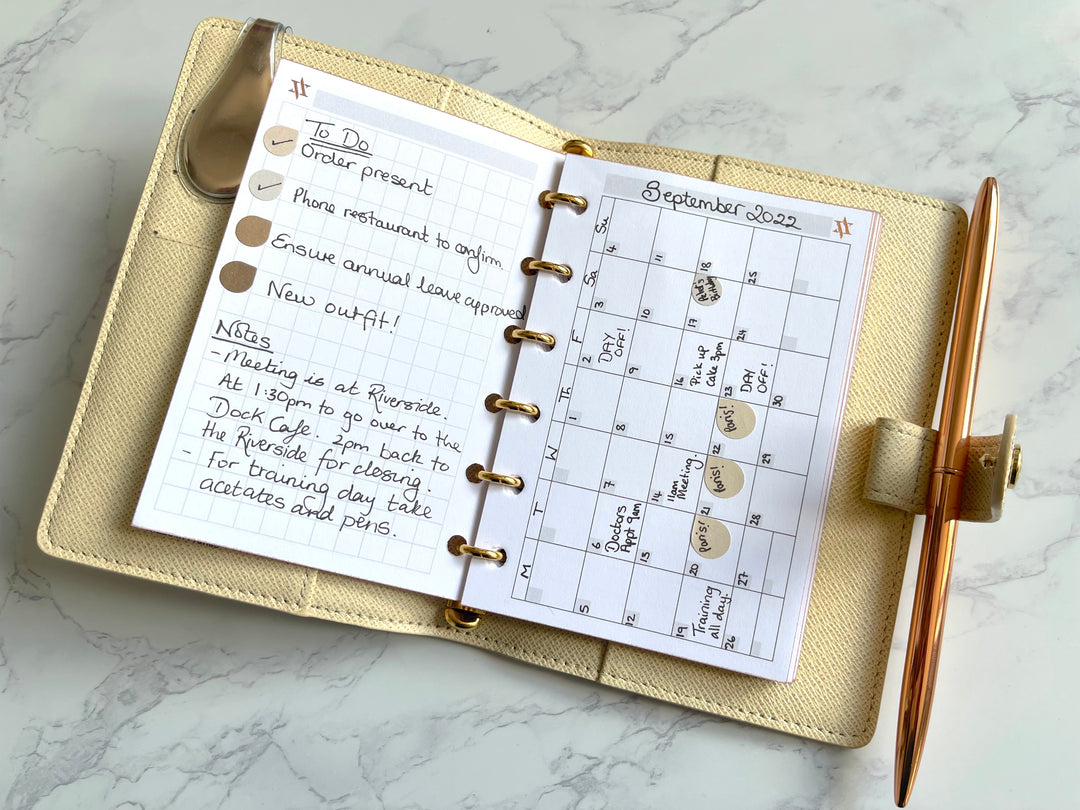 To Do
Order present
Phone restaurant to confirm.
Ensure annual leave approved
New outfit!
Notes
- Meeting is at Riverside.
At 1:30pm to go over to the
Dock Cafe. 2pm back to
the Riverside for closing.
- For training day take
acetates and pens.
September 2022
M T W Th F Sa Su
1
2
DAY
OFF!
3
4
5
6
Doctors
Appt 9am
7
8
9
10
11
12
13
14
11am
Meeting.
15
16
Pick up
Cake 3pm
17
18
Birthday
19
Training
all day!
20
Paris!
21
Paris!
22
Paris!
23
DAY
OFF!
24
25
26
27
28
29
30